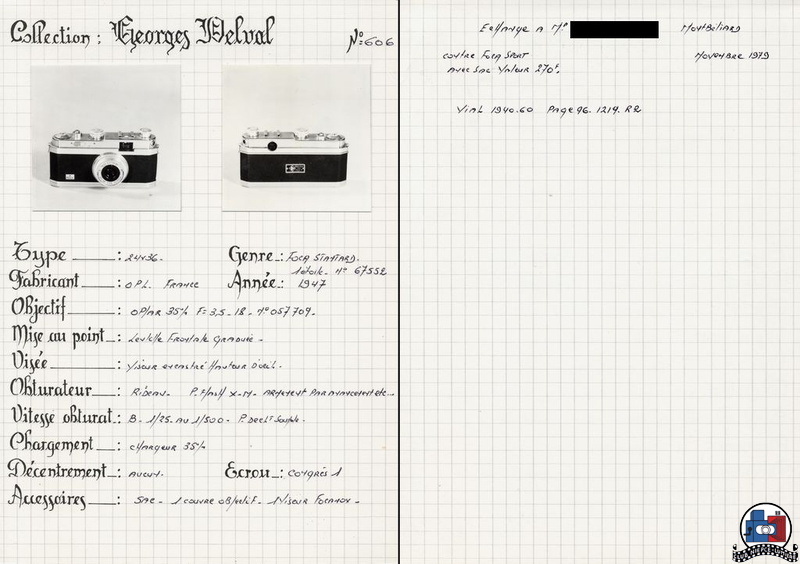 Collection : Georges Delval
N°: 606
Type : 24x36.
Genre : Foca Standard.
1 étoile. N° 67552
Fabricant : O P L. France
Année : 1947
Objectif : OPLAR 35% F=3,5 - 18 - N° 057709.
Mise au point : Levelle Frontale Graduée -
Visée : Viseur Hauteur D'oeil.
Obturateur : Rideau - P. Flash X-M- Armement Par avancement etc...
Vitesse obturat. : B - 1/25. Au 1/500 - P. Declt Souple.
Chargement : chargeur 35%
Décentrement : Aucun.
Ecrou : Congrès 1
Accessoires : Sac - 1 couvre objectif - 1 Viseur -
Echange a Mr
Montbéliard
contre Foca Sport
Novembre 1979
avec Sac Valeur 270f.
Vial 1940.60 Page 96. 1219. R2